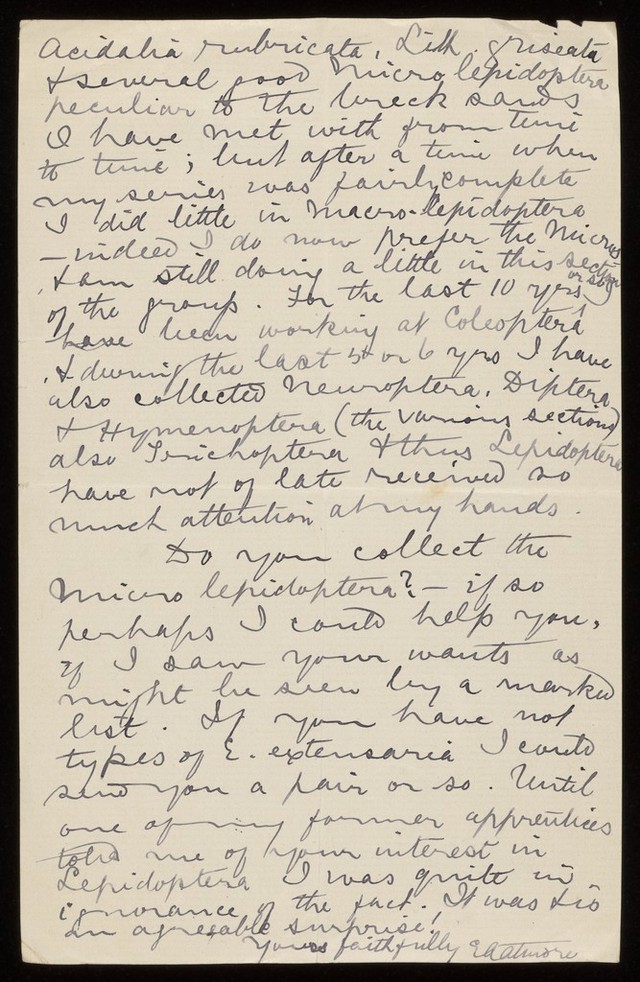 Acidalia rubricata, Lith. griseata
& several good Micro lepidoptera
peculiar to the Breck sands
I have met with from time
to time; but after a time when
my series was fairly complete
I did little in Macro-lepidoptera
- indeed I do now prefer the Micros
& am still doing a little in this section
of the group. For the last 10 yrs or so I
have been working at Coleoptera
& during the last 5 or 6 yrs I have
also collected Neuroptera, Diptera
& Hymenoptera (the various sections)
also Trichoptera & thus Lepidoptera
have not of late received so
much attention at my hands.
Do you collect the
Micro lepidoptera? - if so
perhaps I could help you,
if I saw your wants as
might be seen by a marked
list. If you have not
types of E. extensaria I could
send you a pair or so. Until
one of my former apprentices
told me of your interest in
Lepidoptera I was quite in
ignorance of the fact. It was
an agreeable surprise!
Yours faithfully E A Atmore